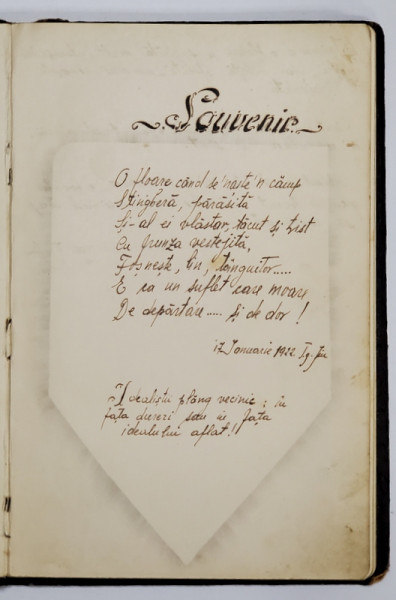 Souvenir.
O floare când se 'naște 'n câmp
Stingheră, părăsită
Și-al ei vlăstar, tăcut și trist
Cu frunza veștejită,
Foșnește, lin, tânguitor.....
E ca un suflet care moare
De depărtare..... și de dor !
17 Ianuarie 1922 Tg. Jiu
Idealiștii plâng vecinic ; în
fața durerii sau in fața
idealului aflat !